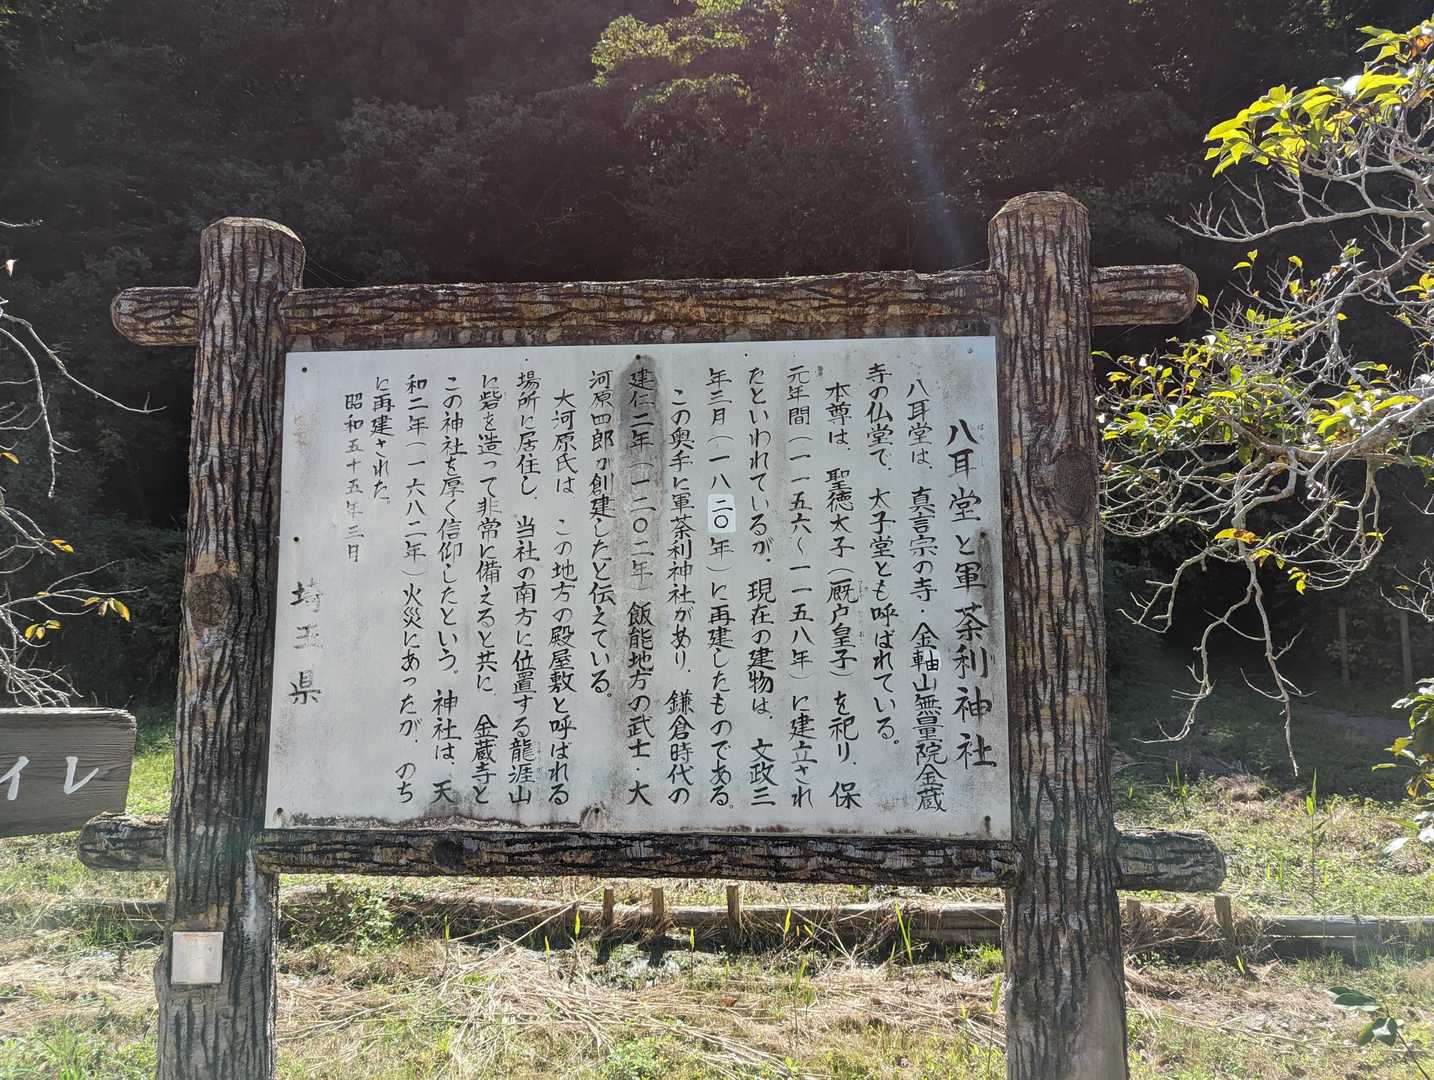 八耳堂と軍荼利神社
八耳堂は、真言宗の寺・金軸山無量院金蔵
寺の仏堂で、大子堂とも呼ばれている。
本尊は、聖徳太子（厩戸皇子）を祀り、保
元年間（一一五六〜一一五八年）に建立され
たといわれているが、現在の建物は、文政三
年三月（一八二〇年）に再建したものである。
この奥手に軍荼利神社があり、鎌倉時代の
建仁二年（一二〇二年）飯能地方の武士・大
河原四郎が創建したと伝えている。
大河原氏は、この地方の殿屋敷と呼ばれる
場所に居住し、当社の南方に位置する龍涯山
に砦を造って非常に備えると共に、金蔵寺と
この神社を厚く信仰したという。神社は、天
和二年（一六八二年）火災にあったが、のち
に再建された。
昭和五十五年三月
埼玉県
イレ